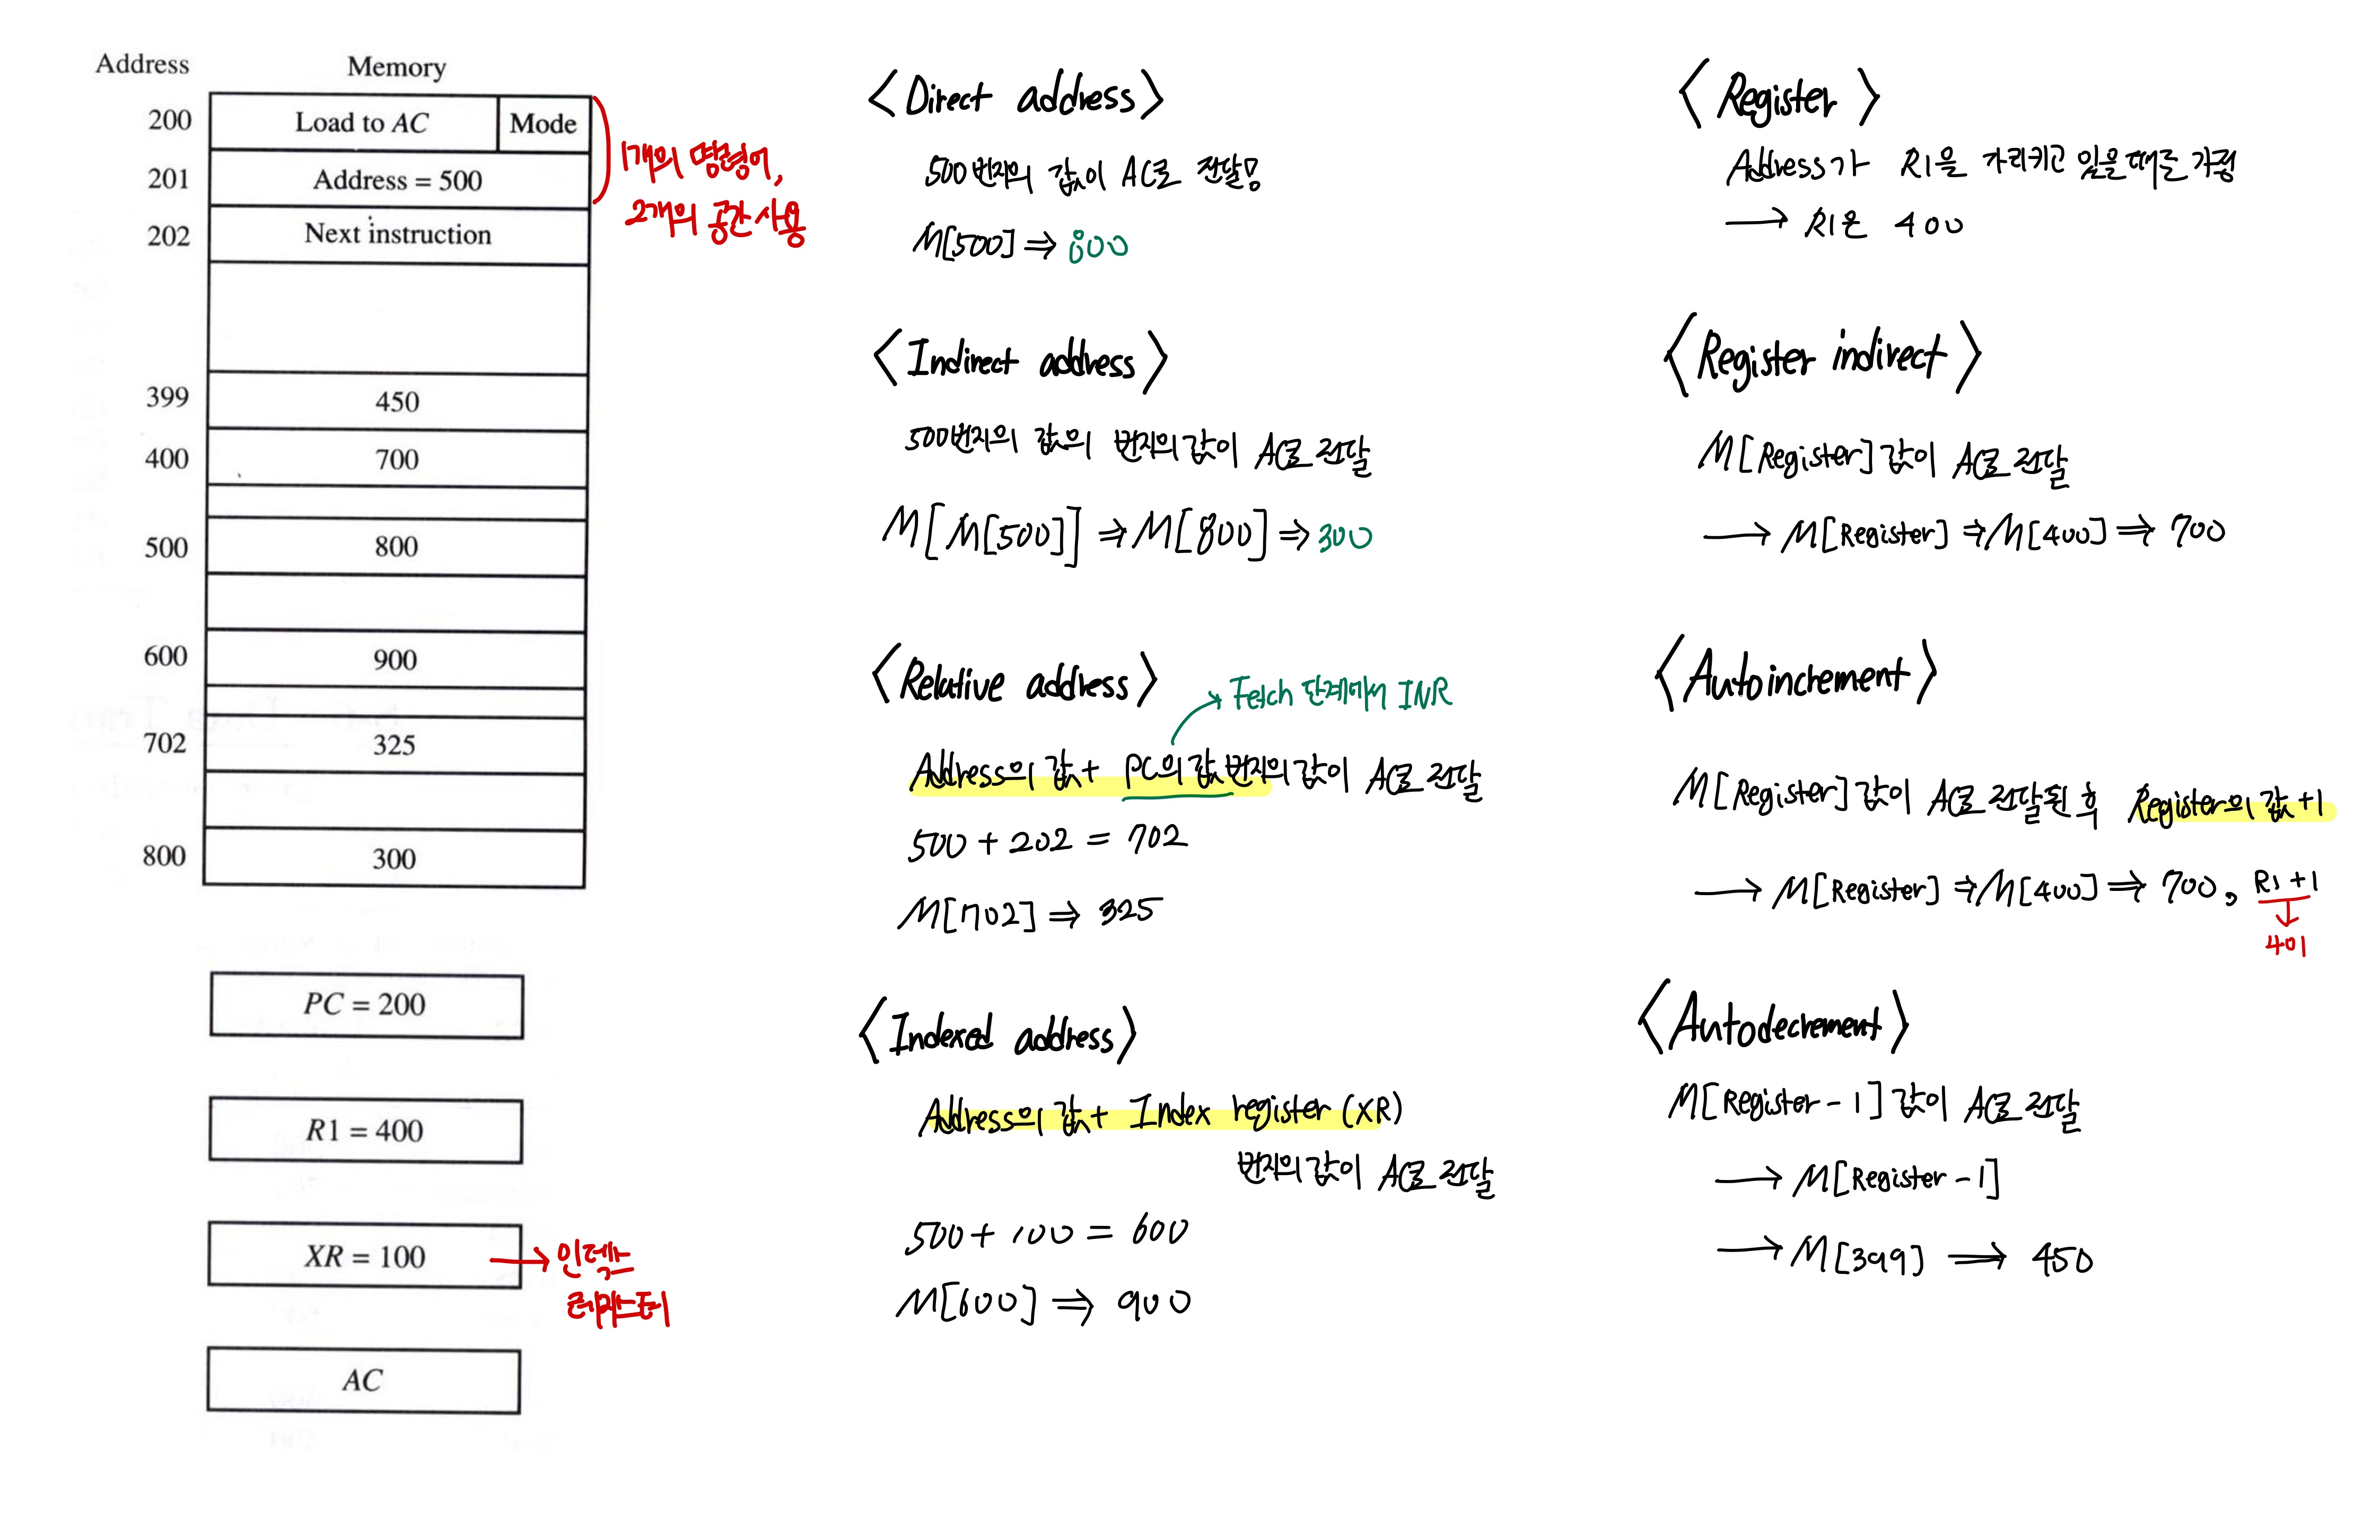 Address Memory
200 Load to AC Mode
201 Address = 500
202 Next instruction
399 450
400 700
500 800
600 900
702 325
800 300
PC = 200
R1 = 400
XR = 100
AC
1개의 명령어,
2개의 공간 사용
→ 인덱스
레지스터
<Direct address>
500번지의 값이 AC로 전달됨
M[500] ⇒ 800
<Indirect address>
500번지의 값의 번지의 값이 AC로 전달
M[M[500]] ⇒ M[800] ⇒ 300
<Relative address>
→ Fetch 단계에서 INR
Address의 값 + PC의 값 번지의 값이 AC로 전달
500 + 202 = 702
M[702] ⇒ 325
<Indexed address>
Address의 값 + Index register (XR)
번지의 값이 AC로 전달
500 + 100 = 600
M[600] ⇒ 900
<Register>
Address가 R1을 가리키고 있을 때를 가정
→ R1은 400
<Register indirect>
M[Register] 값이 AC로 전달
→ M[Register] ⇒ M[400] ⇒ 700
<Autoincrement>
M[Register] 값이 AC로 전달된 후 Register의 값 +1
→ M[Register] ⇒ M[400] ⇒ 700, R1 +1
↓
401
<Autodecrement>
M[Register - 1] 값이 AC로 전달
→ M[Register - 1]
→ M[399] ⇒ 450